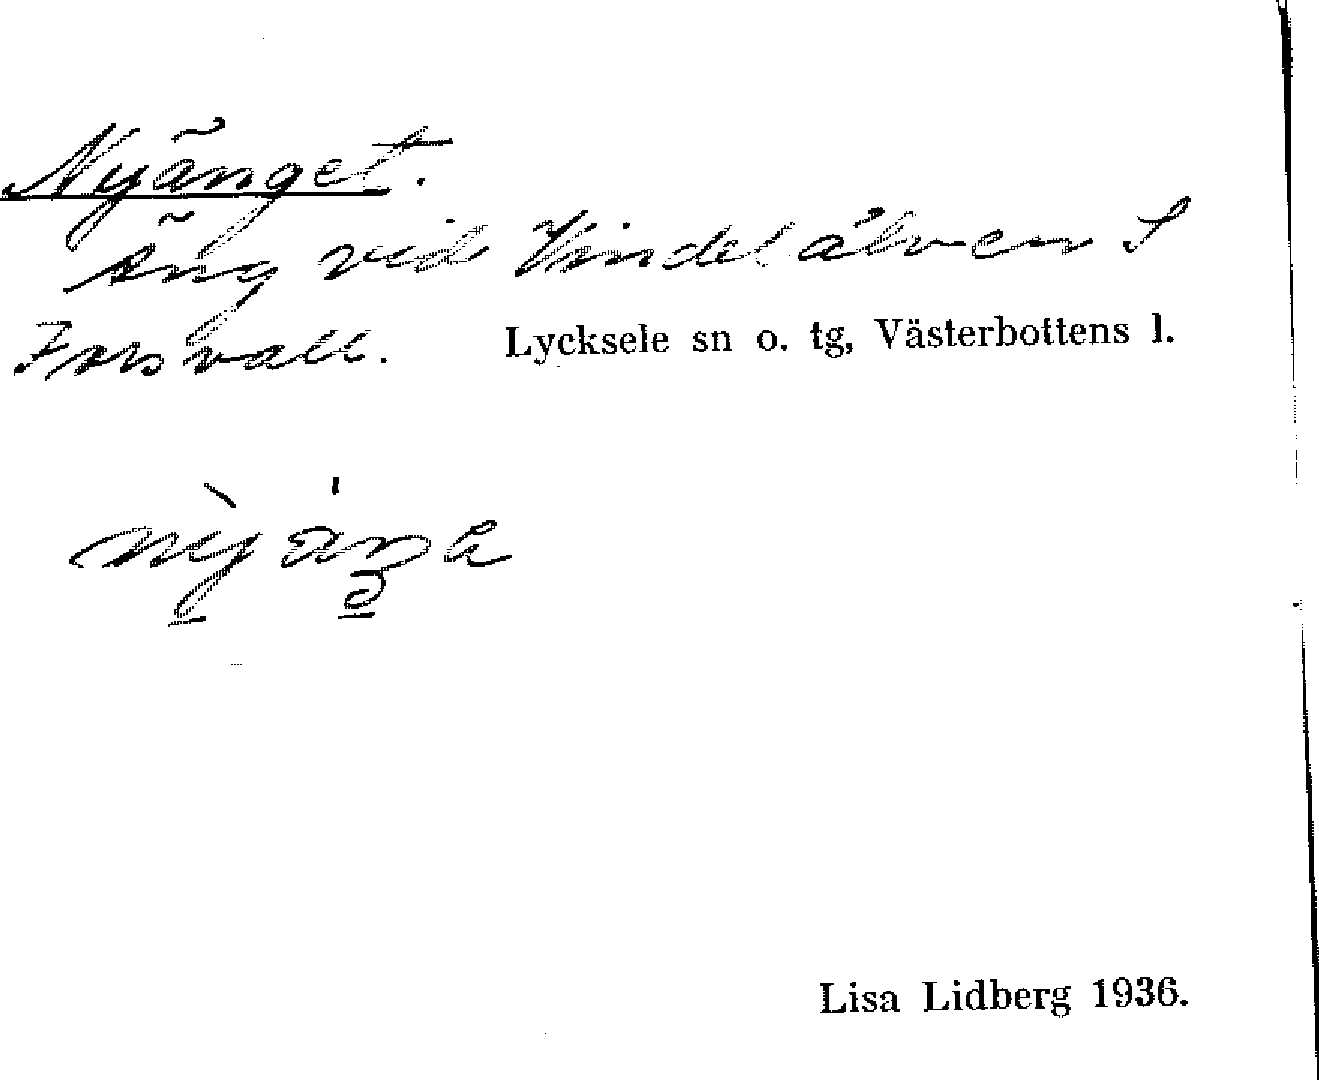 Nyänget.
Äng vid Vindelälven S
Forsvall. Lycksele sn o. tg, Västerbottens l.
Lisa Lidberg 1936.